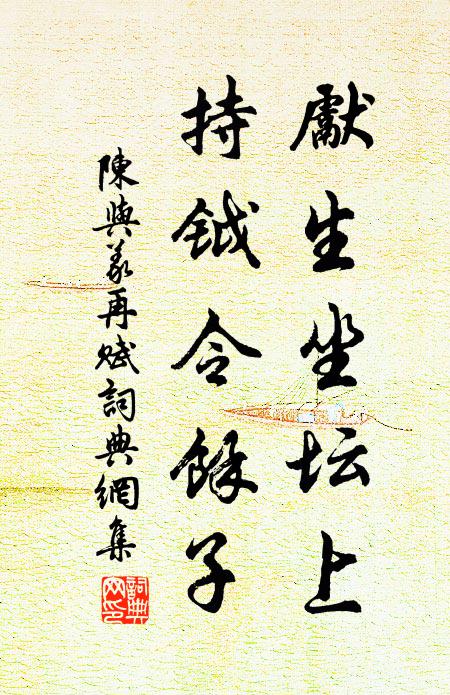 獻生坐坛上
持鉞令餘子
陳與義再賦詞典網集
詞典网印